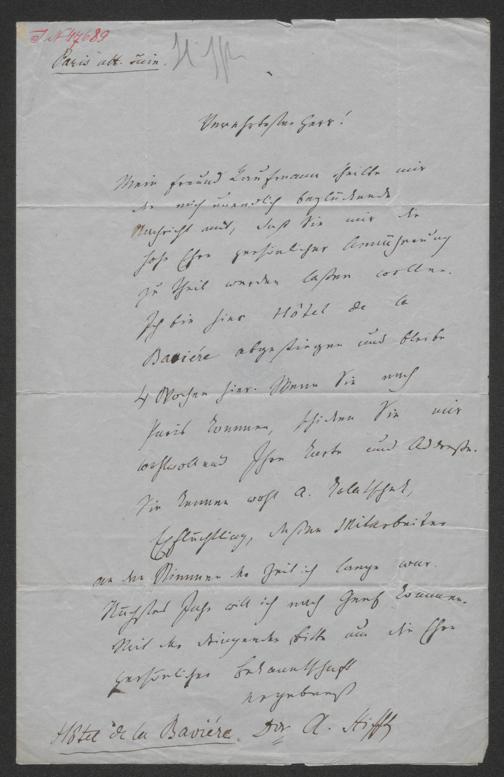 I N 47689
Paris alt. Juin.
Verehrtester Herr!
Mein Freund Kaufmann theilte mir
die mich unendlich beglückende
Nachricht mit, daß Sie mir die
hohe Ehre persönlicher Annäherung
zu Theil werden laßen wollen.
Ich bin hier Hôtel de la
Baviére abgestiegen und bleibe
4 Wochen hier. Wenn Sie nach
Paris kommen, schicken Sie mir
wohlwollend Ihre Karte und Addreße.
Sie kennen wohl A. Kolatschek,
Exflüchtling, deßen Mitarbeiter
an den Stimmen der Zeit ich lange war.
Nächstes Jahr will ich nach Genf kommen.
Mit der dringenden Bitte um die Ehre
persönlicher Bekanntschaft
ergebenst
Hôtel de la Baviére. Dor A. Stifft